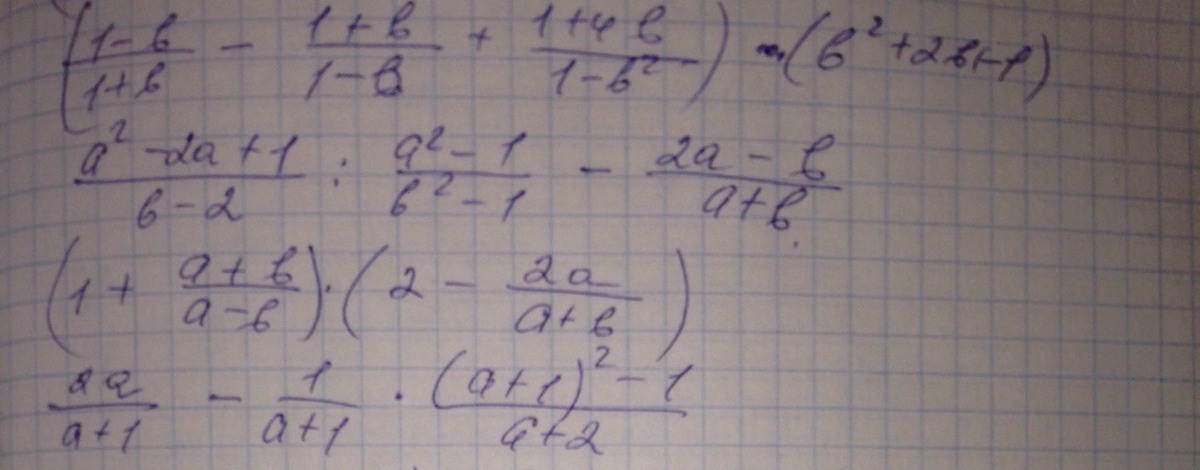 ((1-b)/(1+b) - (1+b)/(1-b) + (1+4b)/(1-b²)) · (b²+2b+1)
(a²-2a+1)/(b-2) : (a²-1)/(b²-1) - (2a-b)/(a+b)
(1 + (a+b)/(a-b)) · (2 - 2a/(a+b))
2a/(a+1) - 1/(a+1) · ((a+1)²-1)/(a+2)